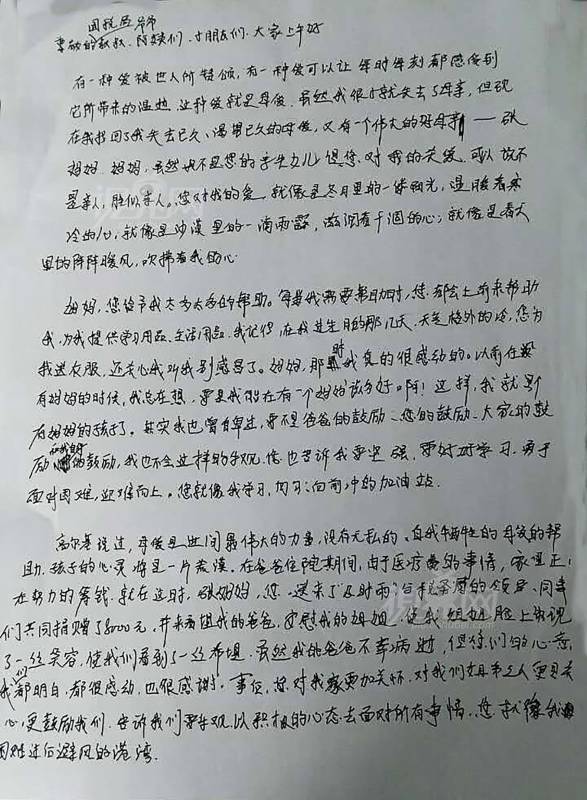 国税局
尊敬的叔叔、阿姨们、小朋友们、大家上午好
有一种爱被世人所赞颂,有一种爱可以让 每时每刻都感受到
它所带来的温热 这种爱就是母爱.虽然我很小就失去了母亲,但现
在我找回了我失去已久、渴望已久的母爱,又有一个伟大的好母亲——张
妈妈. 妈妈,虽然我不是您的亲生女儿 但您对我的关爱 可以说不
是亲人,胜似亲人。您对我的爱 就像是冬日里的一缕阳光,温暖着寒
冷的心,就像是沙漠里的一滴雨露,滋润着干涸的心;就像是春天
里的阵阵暖风,吹拂着我的心
妈妈,您给予我太多太多的帮助。每当我需要帮助时,您都会上前来帮助
我,为我提供学习用品、生活用品.我记得在我过生日的那几天,天气格外的冷,您为
我送衣服,还关心我叫我别感冒了。妈妈,那时我真的很感动的。以前在没
有妈妈的时候,我总在想,要是我现在有一个妈妈该多好啊!这样,我就是
有妈妈的孩子了。其实我也曾自卑过,要不是爸爸的鼓励、您的鼓励、大家的鼓
励 的鼓励,我也不会这样的乐观.您也告诉我要坚强,要好好学习,勇于
面对困难,迎难而上。您就像我学习、 向前冲的加油站.
高尔基说过,母爱是世间最伟大的力量,没有无私的,自我牺牲的母爱的帮
助,孩子的心灵将是一片荒漠。在爸爸住院期间,由于医疗费的事情,家里正
在努力的筹钱.就在这时,张妈妈,您 送来了及时雨, 的领导、同事
们共同捐赠了8000元,并来看望我的爸爸,安慰我的姐姐,使我姐姐脸上出现
了一丝笑容,使我们看到了一丝希望.虽然我的爸爸不幸病逝,但你们的心意,
我们都明白,都很感动,也很感谢.事后,您对我家更加关怀,对我们姐弟三人更是关
心,更鼓励我们.告诉我们要乐观,以积极的心态去面对所有事情.您就像我
困难过后避风的港湾.